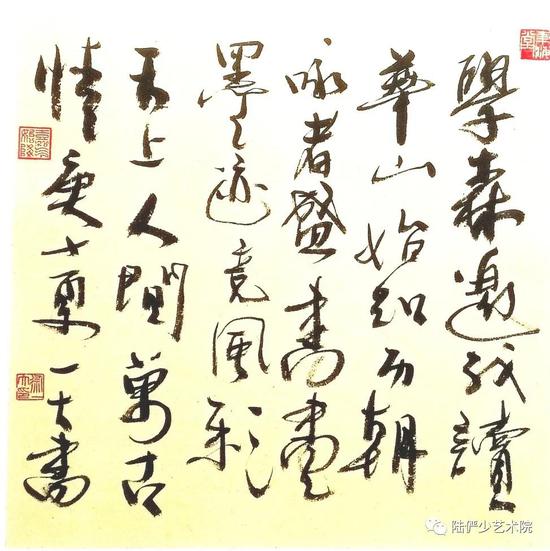 學森邀我讀
華山始知历朝
咏者盛書畫
墨迹竟風彩
天上人間萬古
情庚子夏一大書
陆俨少艺术院